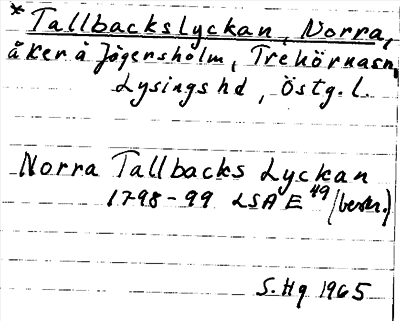 * Tallbackslyckan, Norra,
åker å Jögersholm, Trehörnasn,
Lysings hd, Östg. l.
Norra Tallbacks Lyckan
1798-99 LSA E 49 (beskr.)
S. Hg 1965